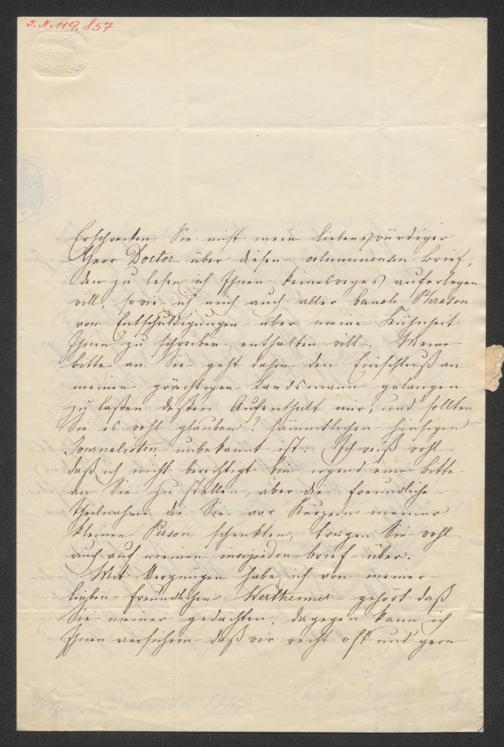 J.N. 119.857
Erschrecken Sie nicht mein liebenswürdiger
Herr Doctor über diesen voluminenten Brief,
den zu lesen ich Ihnen keineswegs auferlegen
will, sowie ich mich auch aller banale Phrasen
von Entschuldigungen über meine Kühnheit
Ihnen zu schreiben, enthalten will. Meine
bitte an Sie geht dahin den Einschluß an
meinen prächtigen Landsmann gelangen
zu laßen deßen Aufenthalt mir, und sollten
Sie es wohl glauben? sämmtlichen hiesigen
Journalisten unbekannt ist. Ich weiß wohl
daß ich nicht berechtigt bin irgend eine bitte
an Sie zu stellen, aber die freundliche
theilnahme die Sie vor Kurzem meiner
kleinen Person schenkten, tragen Sie wohl
auch auf meinen brief über.
Mit Vergnügen habe ich von meiner
lieben Freundin Wertheimer gehört daß
Sie meiner gedachten, dagegen kann ich
Ihnen versichern daß wir recht oft und gern